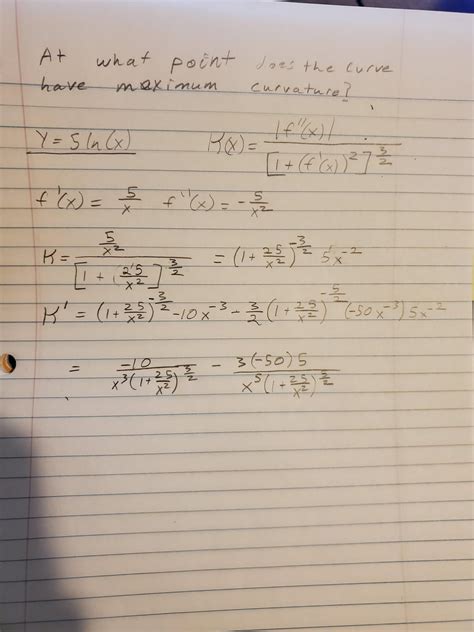 At what point does the curve
have maximum curvature?
Y = 5 ln(x)    K(x) = |f''(x)| / [1 + (f'(x))^2]^(3/2)
f'(x) = 5/x    f''(x) = -5/x^2
K = (5/x^2) / [1 + (25/x^2)]^(3/2) = (1 + 25/x^2)^(-3/2) 5x^-2
K' = (1 + 25/x^2)^(-3/2) -10x^-3 - 3/2 (1 + 25/x^2)^(-5/2) (-50x^-3) 5x^-2
= -10 / (x^3 (1 + 25/x^2)^(3/2)) - 3(-50)5 / (x^5 (1 + 25/x^2)^(5/2))